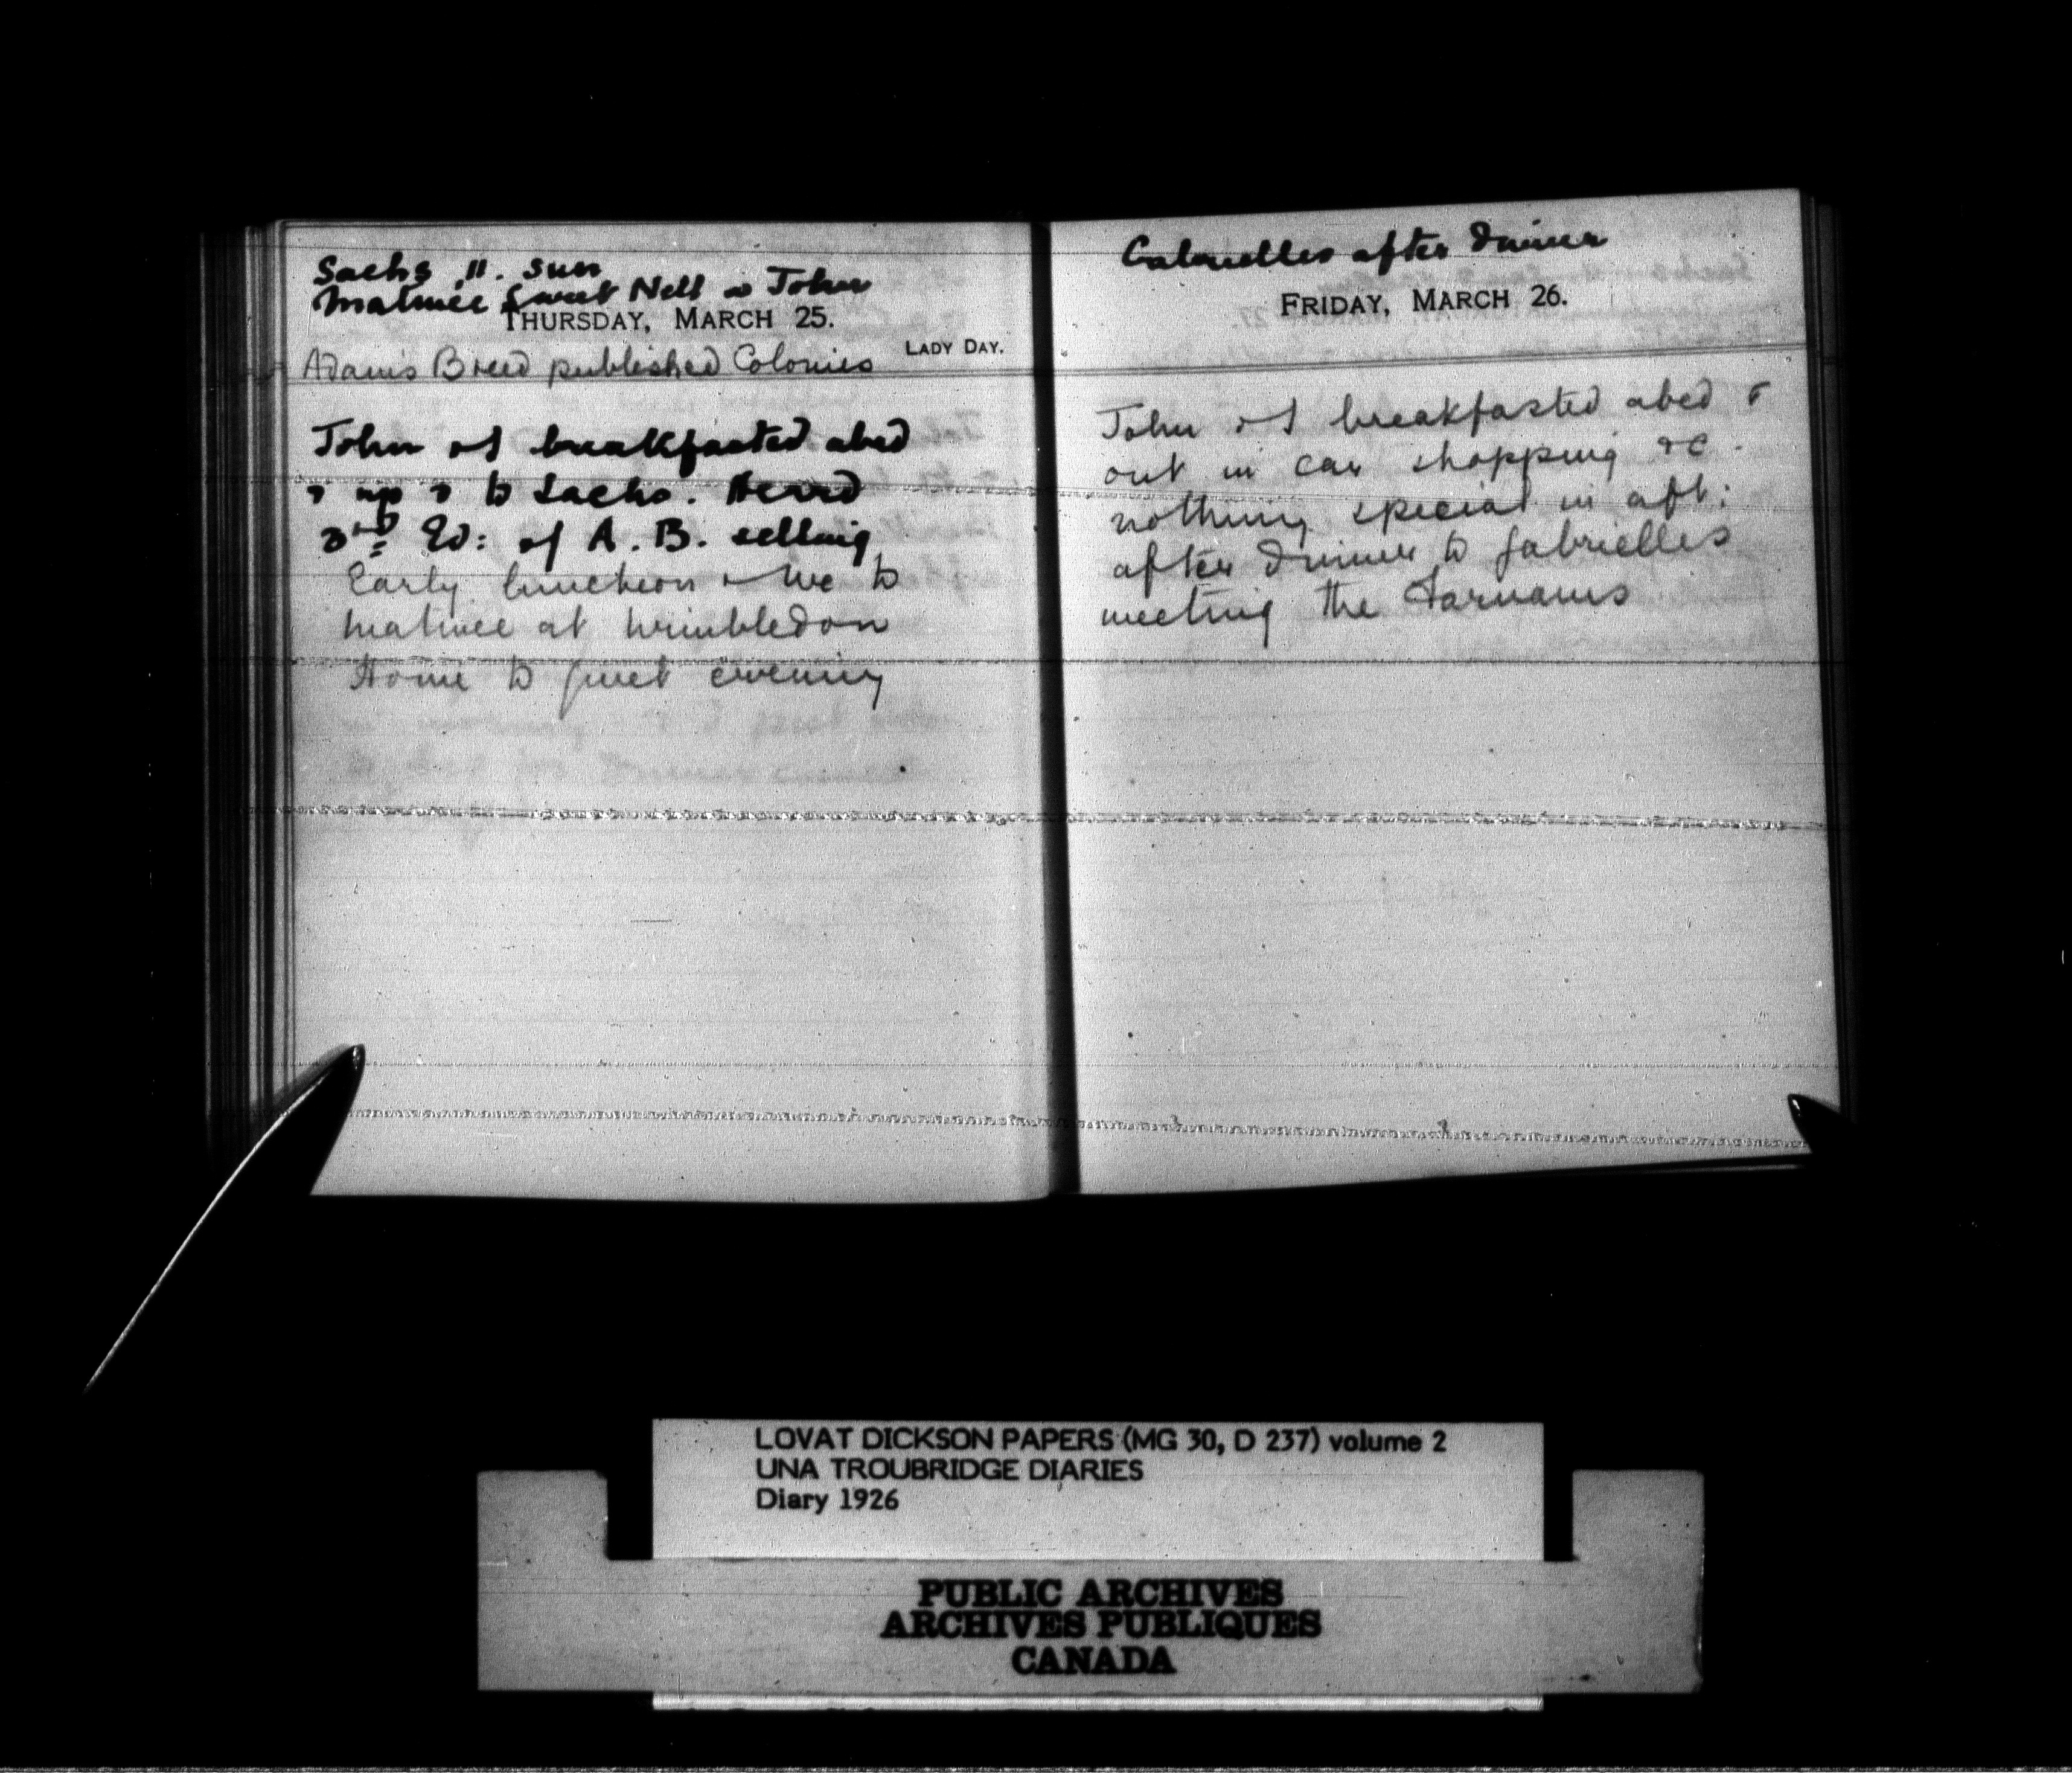 Sachs 11. sun
Matinée Sweet Nell & John
THURSDAY, MARCH 25.
LADY DAY.
Adam's Breed published Colonies
John & I breakfasted abed
& up & to Sachs. Heard
3rd Ed: of A. B. selling
Early luncheon & we to
matinee at Wimbledon
Home to quiet evening
Gabrielles after dinner
FRIDAY, MARCH 26.
John & I breakfasted abed &
out in car shopping &c.
nothing special in aft:
after dinner to Gabrielles
meeting the Farnams
LOVAT DICKSON PAPERS (MG 30, D 237) volume 2
UNA TROUBRIDGE DIARIES
Diary 1926
PUBLIC ARCHIVES
ARCHIVES PUBLIQUES
CANADA